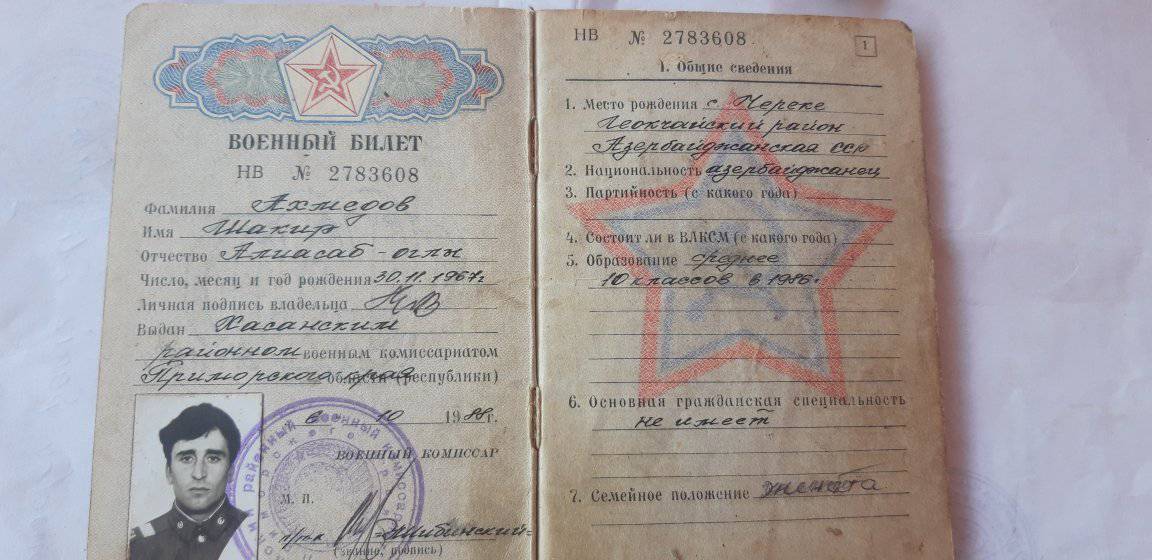 ВОЕННЫЙ БИЛЕТ
НВ № 2783608
Фамилия Ахмедов
Имя Шакир
Отчество Алиасаб-оглы
Число, месяц и год рождения 30.11.1967г
Личная подпись владельца
Выдан Хасанским
районном военным комиссариатом
Приморского края области (республики)
10 1988г.
ВОЕННЫЙ КОМИССАР
М. П.
(звание, подпись)
НВ № 2783608
1
1. Общие сведения
1. Место рождения с. Череке
Геокчайский район
Азербайджанская ССР
2. Национальность азербайджанец
3. Партийность (с какого года)
4. Состоит ли в ВЛКСМ (с какого года)
5. Образование среднее
10 классов в 1986г
6. Основная гражданская специальность
не имеет
7. Семейное положение